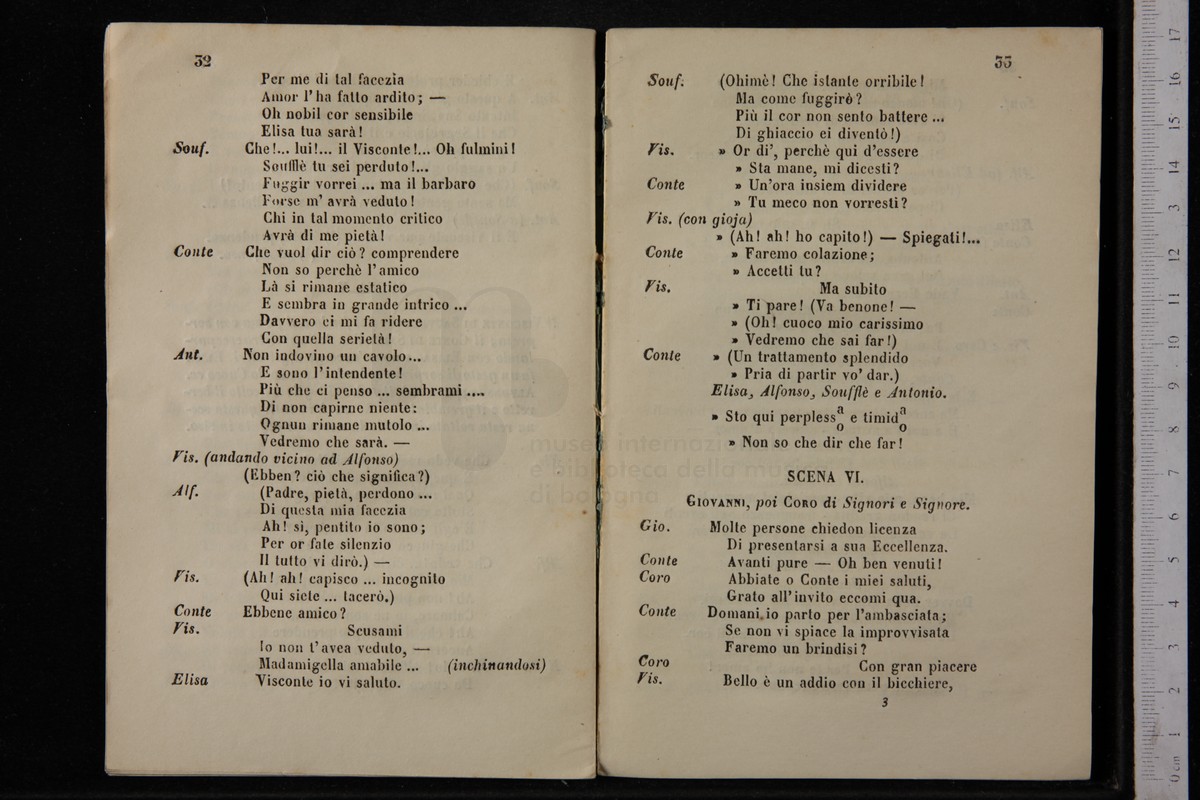 32
Per me di tal facezia
Amor l'ha fatto ardito; —
Oh nobil cor sensibile
Elisa tua sarà!
Souf. Che!... lui!... il Visconte!... Oh fulmini!
Soufflè tu sei perduto!...
Fuggir vorrei ... ma il barbaro
Forse m'avrà veduto!
Chi in tal momento critico
Avrà di me pietà!
Conte Che vuol dir ciò? comprendere
Non so perchè l'amico
Là si rimane estatico
E sembra in grande intrico ...
Davvero ei mi fa ridere
Con quella serietà!
Ant. Non indovino un cavolo...
E sono l'intendente!
Più che ci penso ... sembrami ....
Di non capirne niente:
Ognun rimane mutolo ...
Vedremo che sarà. —
Vis. (andando vicino ad Alfonso)
(Ebben? ciò che significa?)
Alf. (Padre, pietà, perdono ...
Di questa mia facezia
Ah! sì, pentito io sono;
Per or fate silenzio
Il tutto vi dirò.) —
Vis. (Ah! ah! capisco ... incognito
Qui siete ... tacerò.)
Conte Ebbene amico?
Vis. Scusami
Io non t'avea veduto, —
Madamigella amabile ... (inchinandosi)
Elisa Visconte io vi saluto.
33
Souf. (Ohimè! Che istante orribile!
Ma come fuggirò?
Più il cor non sento battere ...
Di ghiaccio ei diventò!)
Vis. » Or di', perchè qui d'essere
» Sta mane, mi dicesti?
Conte » Un'ora insiem dividere
» Tu meco non vorresti?
Vis. (con gioja)
» (Ah! ah! ho capito!) — Spiegati!...
Conte » Faremo colazione;
» Accetti tu?
Vis. Ma subito
» Ti pare! (Va benone! —
» (Oh! cuoco mio carissimo
» Vedremo che sai far!)
Conte » (Un trattamento splendido
» Pria di partir vo' dar.)
Elisa, Alfonso, Soufflè e Antonio.
» Sto qui perpless a/o e timid a/o
» Non so che dir che far!
SCENA VI.
GIOVANNI, poi CORO di Signori e Signore.
Gio. Molte persone chiedon licenza
Di presentarsi a sua Eccellenza.
Conte Avanti pure — Oh ben venuti!
Coro Abbiate o Conte i miei saluti,
Grato all'invito eccomi qua.
Conte Domani io parto per l'ambasciata;
Se non vi spiace la improvvisata
Faremo un brindisi?
Coro Con gran piacere
Vis. Bello è un addio con il bicchiere,
3
museo internazionale
e biblioteca della musica
di bologna